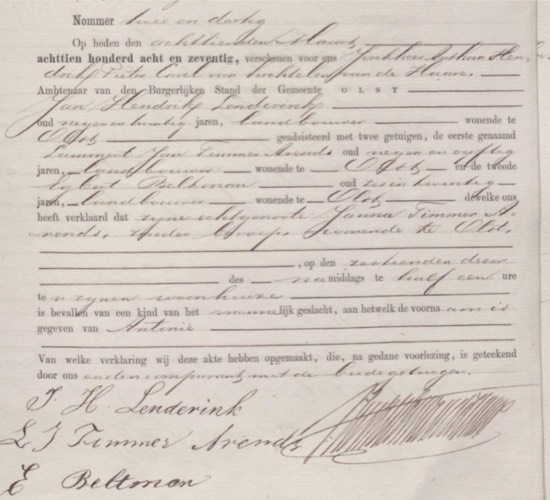 Nommer twee en dertig
Op heden den achttienden Maart
achttien honderd acht en zeventig, verschenen voor ons Jonkheer Arthur Hen-
drik Pieter Carel van Haersolte van de Haere
Ambtenaar van den Burgerlijken Stand der Gemeente OLST
Jan Hendrik Lenderink
oud negen en twintig jaren, landbouwer wonende te
Olst geadsisteerd met twee getuigen, de eerste genaamd
Lammert Jan Timmer Arends oud negen en vijftig
jaren, landbouwer wonende te Olst en de tweede
Egbert Beltman oud zes en twintig
jaren, landbouwer wonende te Olst dewelke ons
heeft verklaard dat zijne echtgenoote Janna Timmer A-
rends, zonder beroep, wonende te Olst,
, op den zestienden dezer
des namiddags te half een ure
te n zijnen woonhuize
is bevallen van een kind van het mannelijk geslacht, aan hetwelk de voorna am is
gegeven van Antonie
Van welke verklaring wij deze akte hebben opgemaakt, die, na gedane voorlezing, is geteekend
door ons en den comparant met de beide getuigen.
J. H. Lenderink
L J Timmer Arends
E Beltman